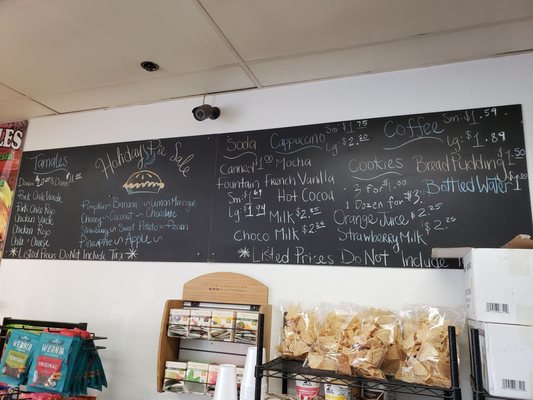 LES
Tamales
Pork Chile Verde
Pork Chile Rojo
Chicken Verde
Chicken Rojo
Chile & Cheese
Holiday Pie Sale
Pumpkin ~ Banana ~ Lemon Meringue
Cherry ~ Coconut ~ Chocolate
Strawberry ~ Sweet Potato ~ Pecan
Pineapple ~ Apple ~
*Listed Prices Do Not Include Tax*
Soda
Canned $1.00
Fountain
Sm $1.69
Lg
Cappuccino Sm $1.75
Lg $2.
Mocha
French Vanilla
Hot Cocoa
Milk $2.25
Choco Milk $2.
Coffee Sm $1.59
Lg $1.89
Cookies
3 for $1.00
1 Dozen for $3.
Bread Pudding $1.50
Bottled Water $1.
Orange Juice $2.25
Strawberry Milk $2.25
*Listed Prices Do Not Include
WERNER
WERNER
ORIGINAL